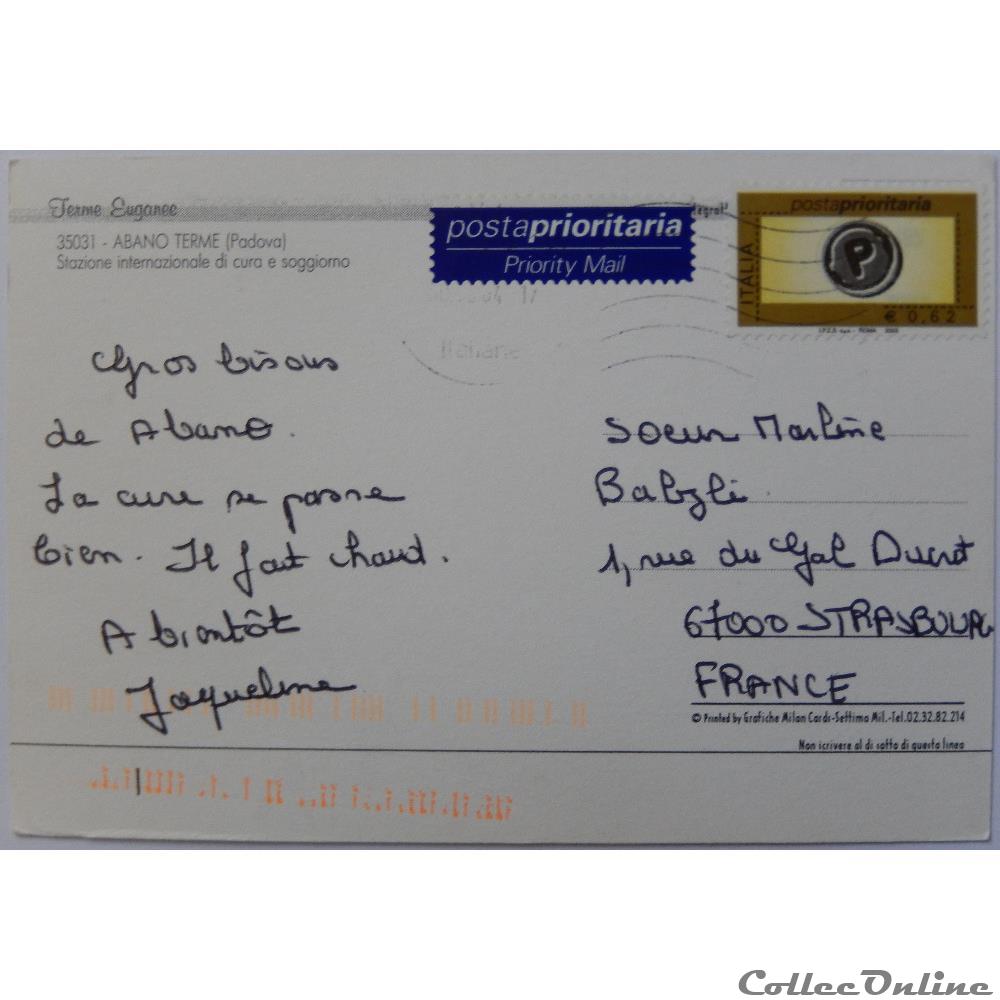 Terme Euganee
35031 - ABANO TERME (Padova)
Stazione internazionale di cura e soggiorno
postaprioritaria
Priority Mail
postaprioritaria
ITALIA
P
€ 0,62
I.P.Z.S. S.p.A. - ROMA 2003
Gros bisous
de Abano.
La cure se passe
bien. Il fait chaud.
A bientôt
Jaqueline
Soeur Marlène
1, rue du Gal Ducrot
67000 STRASBOURG
FRANCE
© Printed by Grafiche Milan Cards-Settimo Mil.-Tel.02.32.82.214
Non scrivere al di sotto di questa linea
CollecOnline